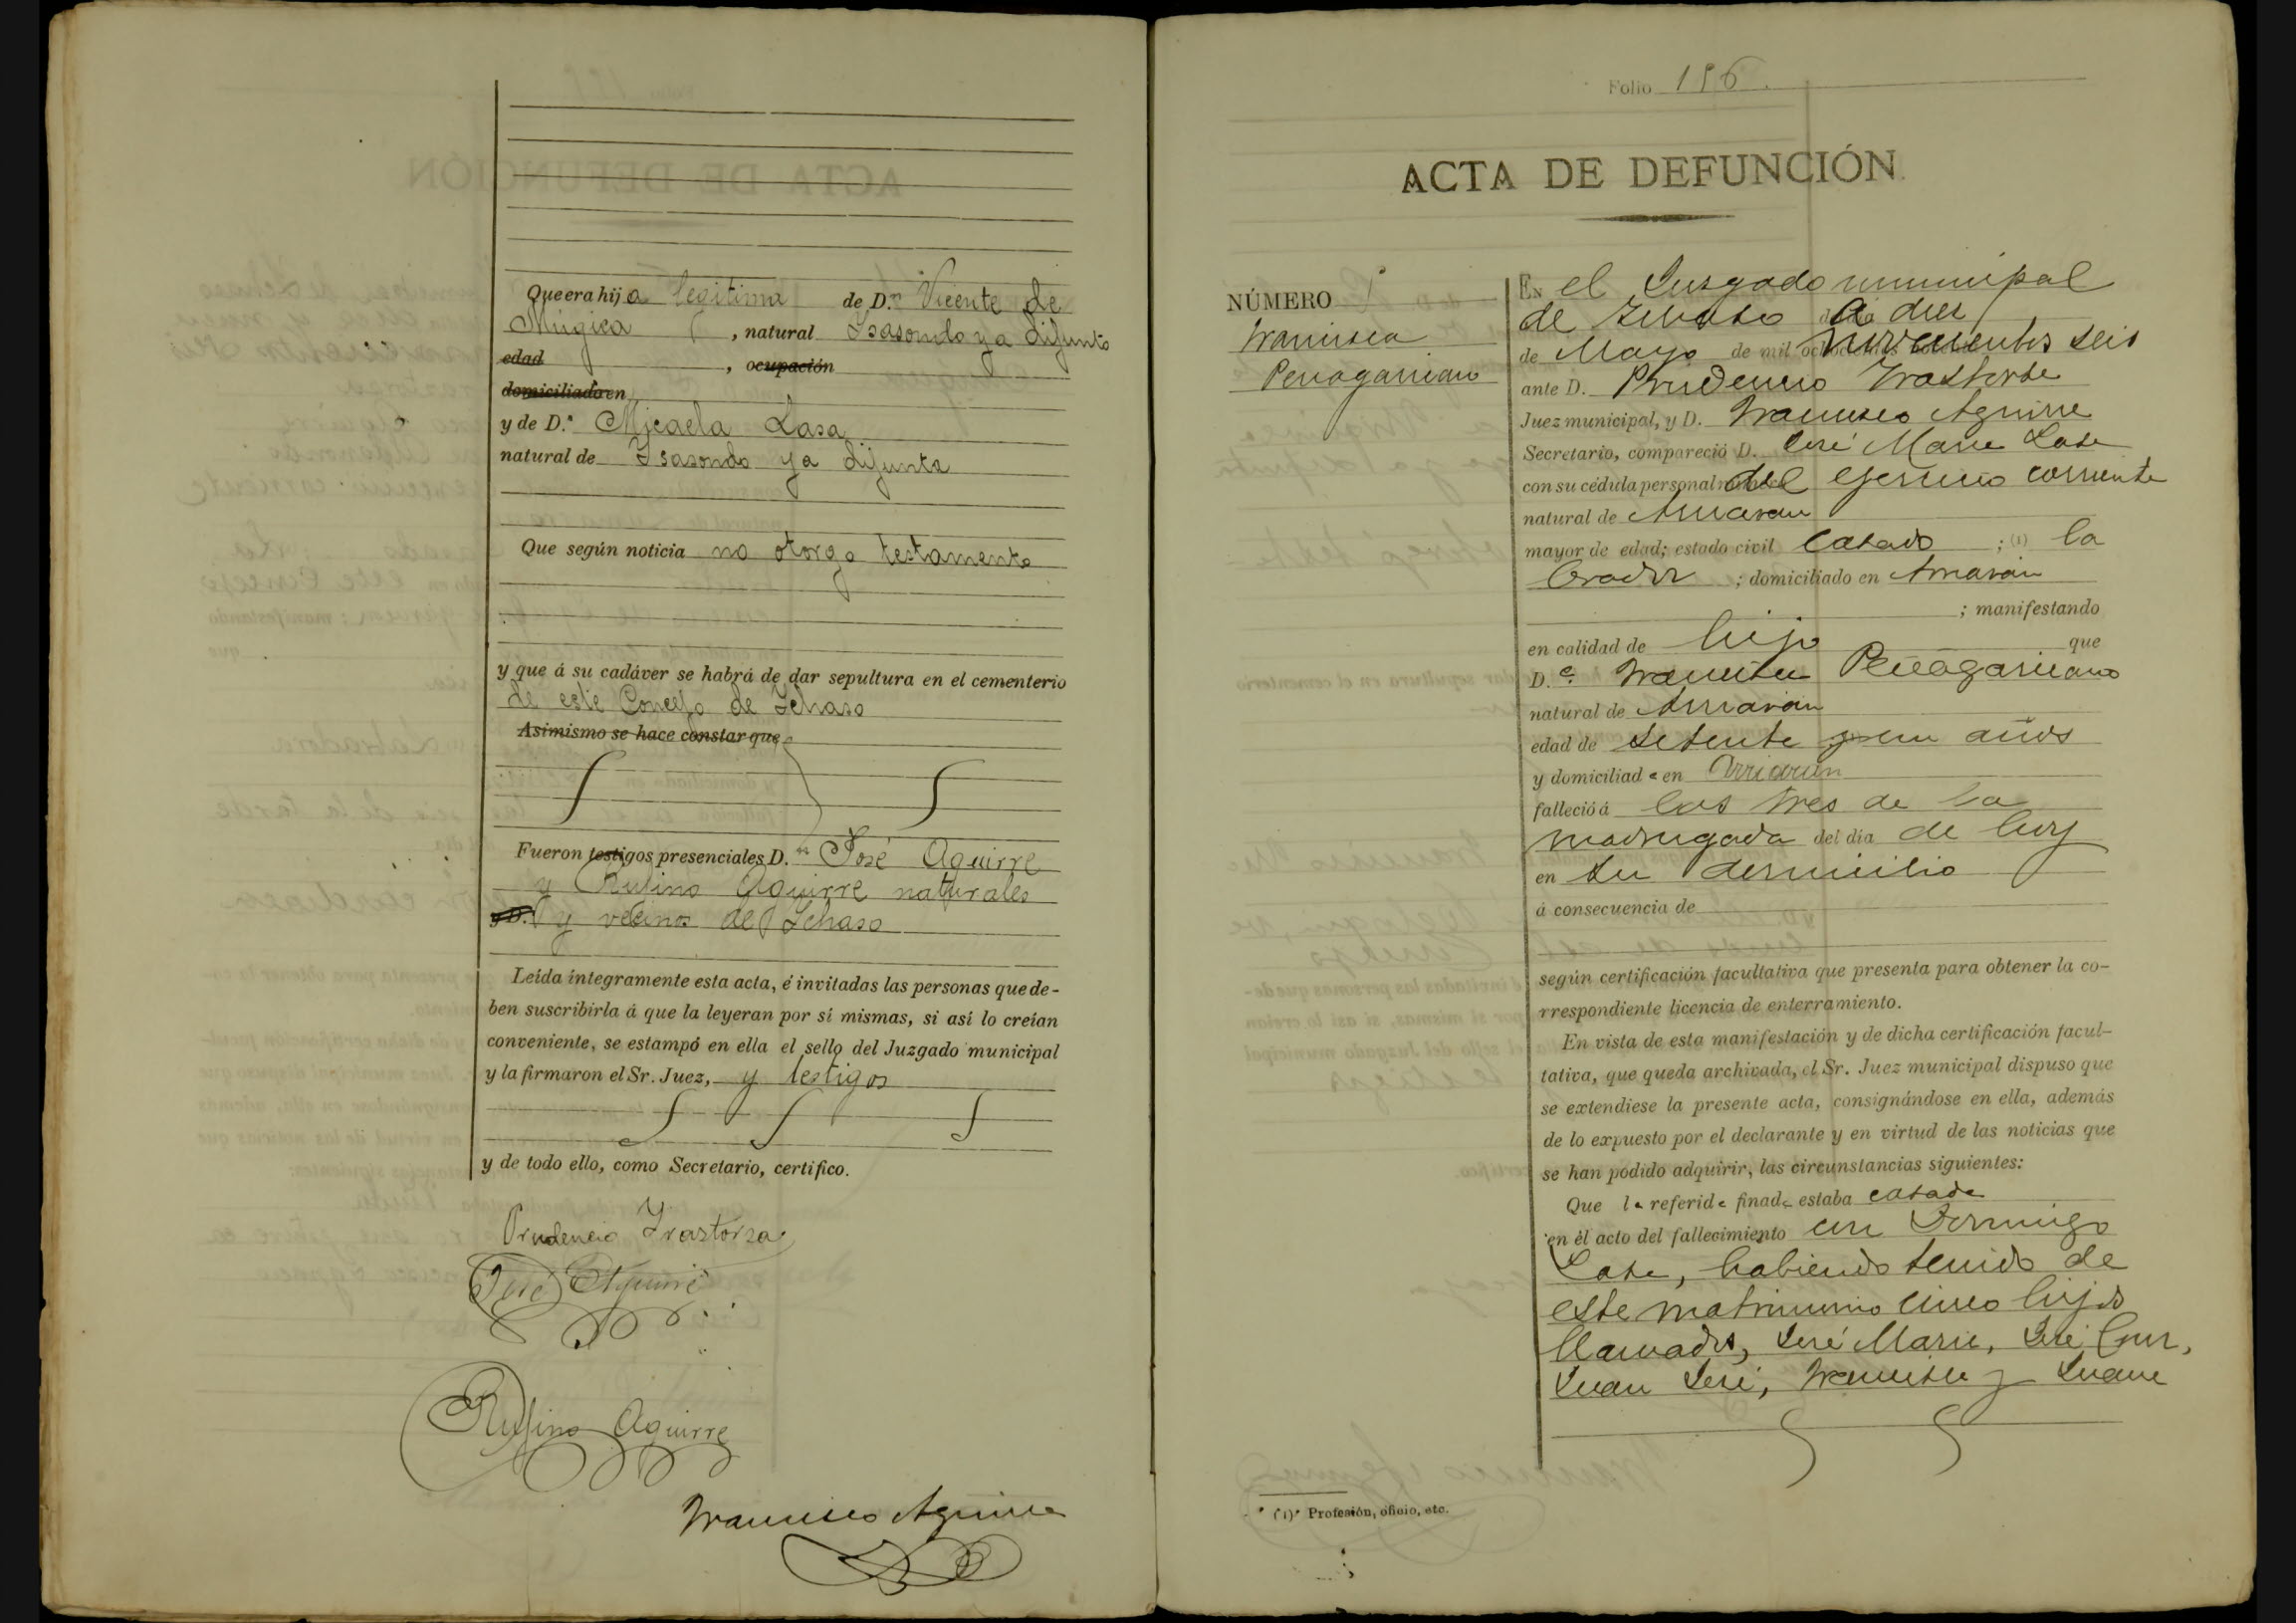 Que era hija legitima de D.n Vicente de
Múgica , natural Isasondo ya difunto
edad , ocupación
domiciliado en
y de D.ª Micaela Lasa
natural de Isasondo ya difunta
Que según noticia no otorgo testamento
y que á su cadáver se habrá de dar sepultura en el cementerio
de este Concejo de Ichaso
Asimismo se hace constar que
Fueron testigos presenciales D.n José Aguirre
y Rufino Aguirre naturales
y D. y vecinos de Ichaso
Leída íntegramente esta acta, é invitadas las personas que de-
ben suscribirla á que la leyeran por sí mismas, si así lo creían
conveniente, se estampó en ella el sello del Juzgado municipal
y la firmaron el Sr. Juez, y testigos
y de todo ello, como Secretario, certifico.
Prudencio Irastorza
José Aguirre
Rufino Aguirre
Francisco Aguirre
Folio 156.
ACTA DE DEFUNCIÓN
NÚMERO
Francisca
Penagarican
En el Juzgado municipal
de Ichaso a diez
de Mayo de mil novecientos seis
ante D. Prudencio Irastorza
Juez municipal, y D. Francisco Aguirre
Secretario, compareció D. José Maria Lasa
con su cédula personal del ejercicio corriente
natural de Arriaran
mayor de edad; estado civil casado ; (1) la
brador ; domiciliado en Arriaran
; manifestando
en calidad de hijo que
D.ª Francisca Peñagaricano
natural de Arriaran
edad de setenta años
y domiciliada en Arriaran
falleció á las tres de la
madrugada del día de hoy
en su domicilio
á consecuencia de
según certificación facultativa que presenta para obtener la co-
rrespondiente licencia de enterramiento.
En vista de esta manifestación y de dicha certificación facul-
tativa, que queda archivada, el Sr. Juez municipal dispuso que
se extendiese la presente acta, consignándose en ella, además
de lo expuesto por el declarante y en virtud de las noticias que
se han podido adquirir, las circunstancias siguientes:
Que la referida finada estaba casada
en el acto del fallecimiento con Domingo
Lasa, habiendo tenido de
este matrimonio cinco hijos
llamados, José Maria, José Cruz,
Juan José, Francisca y Juana
(1) Profesión, oficio, etc.